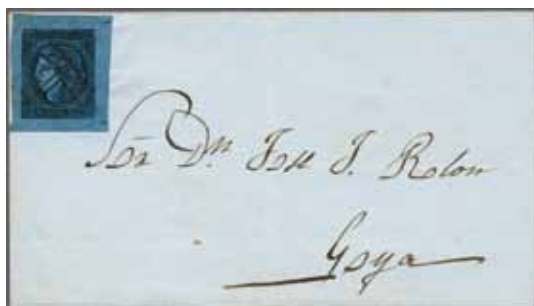 Sor Dn José J. Rolon
Goya